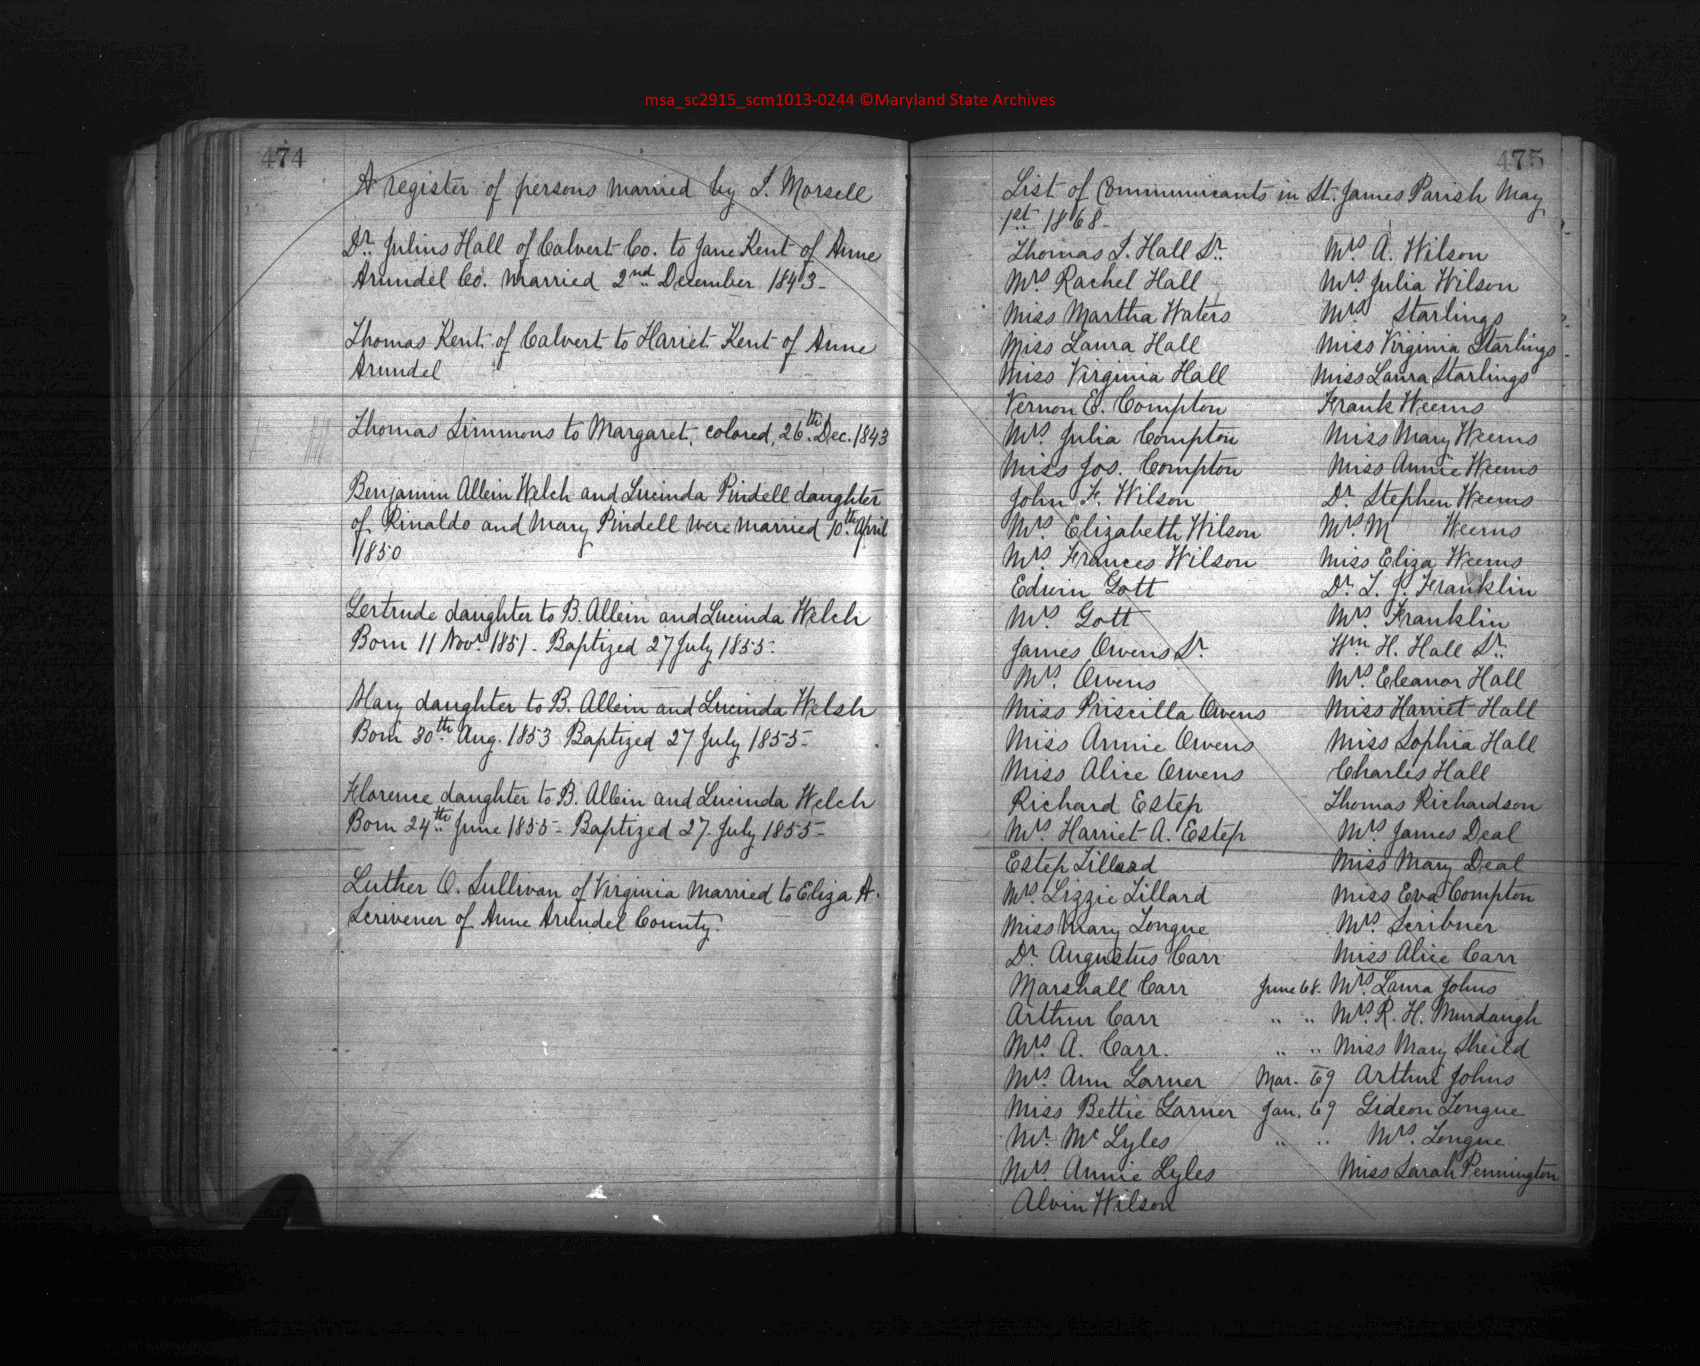 msa_sc2915_scm1013-0244 ©Maryland State Archives
474
A register of persons married by J. Morsell
Dr. Julius Hall of Calvert Co. to Jane Kent of Anne
Arundel Co. married 2nd December 1843-
Thomas Kent of Calvert to Hariet Kent of Anne
Arundel
Thomas Simmons to Margaret, colored, 26th Dec. 1843
Benjamin Allein Welch and Lucinda Pindell daughter
of Rinaldo and Mary Pindell were married 10th April
1850
Gertrude daughter to B. Allein and Lucinda Welch
Born 11 Nov. 1851- Baptized 27 July 1855-
Mary daughter to B. Allein and Lucinda Welsh
Born 30th Aug. 1853 Baptized 27 July 1855-
Florence daughter to B. Allein and Lucinda Welch
Born 24th June 1855- Baptized 27. July 1855-
Luther O. Sullivan of Virginia married to Eliza A.
Scrivener of Anne Arundel County.
475
List of Communicants in St. James Parish May
1st 1868-
Thomas J. Hall Sr.
Mrs. Rachel Hall
Miss Martha Waters
Miss Laura Hall
Miss Virginia Hall
Vernon E. Compton
Mrs. Julia Compton
Miss Jos. Compton
John F. Wilson
Mrs. Elizabeth Wilson
Mrs. Frances Wilson
Edwin Gott
Mrs. Gott
James Owens Sr.
Mrs. Owens
Miss Priscilla Owens
Miss Annie Owens
Miss Alice Owens
Richard Estep
Mrs. Harriet A. Estep
Estep Lillard
Mrs. Lizzie Lillard
Miss Mary Tongue
Dr. Augustus Carr
Marshall Carr
Arthur Carr
Mrs. A. Carr.
Mrs. Ann Garner
Miss Bettie Garner
Mr. Mc Lyles
Mrs. Annie Lyles
Alvin Wilson
Mrs. A. Wilson
Mrs. Julia Wilson
Mrs Starlings
Miss Virginia Starlings
Miss Laura Starlings
Frank Weems
Miss Mary Weems
Miss Annie Weems
Dr. Stephen Weems
Mrs. M Weems
Miss Eliza Weems
Dr. T. J. Franklin
Mrs. Franklin
Wm H. Hall Sr.
Mrs. Eleanor Hall
Miss Harriet Hall
Miss Sophia Hall
Charles Hall
Thomas Richardson
Mrs James Deal
Miss Mary Deal
Miss Eva Compton
Mrs. Scribner
Miss Alice Carr
June 68. Mrs. Laura Johns
" " Mrs. R. H. Murdaugh
" " Miss Mary Sheild
Mar. 69 Arthur Johns
Jan. 69 Gideon Tongue
" " Mrs. Tongue
Miss Sarah Pennington